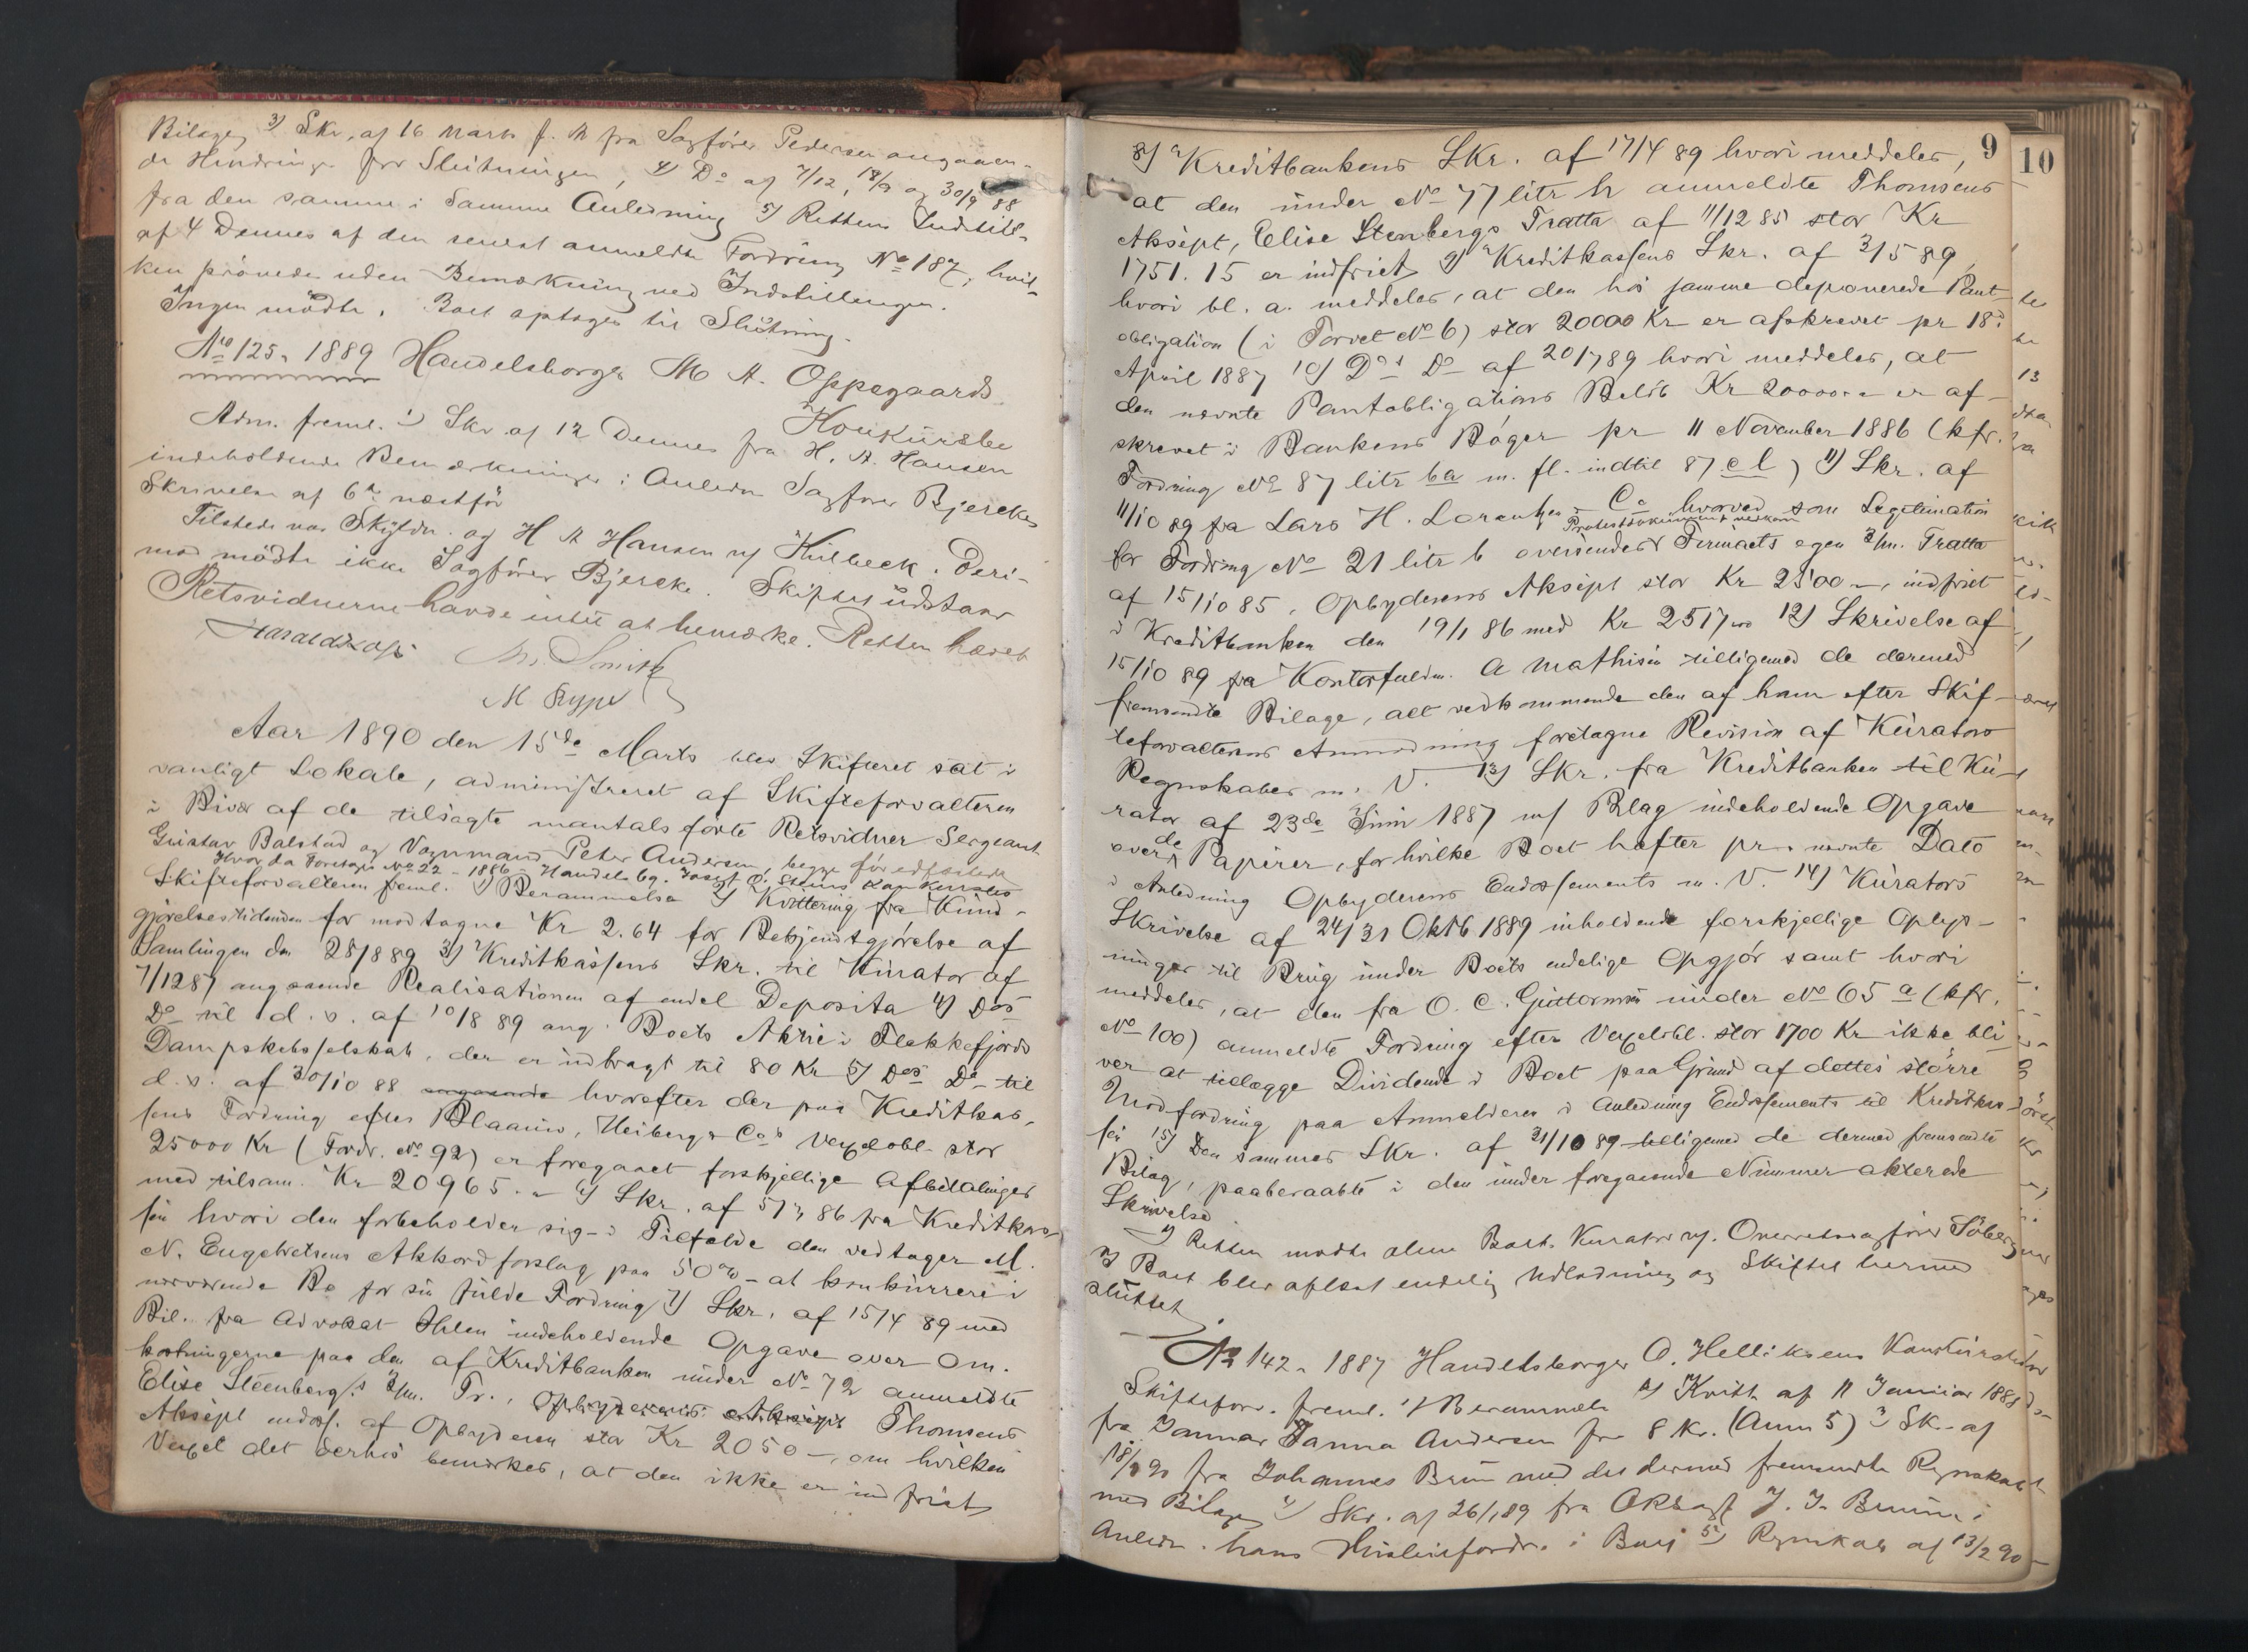 Bilage, 3) Skr. af 16 Marts f. A fra Sagfører Pedersen angaaen-
de Hindringer for Slutningen, 4) Do af 7/12, 18/9 og 30/9 88
fra den samme i samme Anledning 5) Rettens Indstill.
af 4 Dennes af den senest anmeldte Fordring No 187, hvil-
ken prøvedes uden Bemærkning ved Indstillingen.
Ingen mødte. Boet optoges til Slutning.
No 125. 1889 Handelsborger M A. Oppegaards
Konkursbo
Adm. freml. 1) Skr. af 12 Dennes fra H. A. Hansen
indeholdende Bemærkninger i Anledn Sagfører Bjerckes
Skrivelse af 6te næstfør
Tilstede var Skyldn. og H A Hansen v/ Hulbeck. Deri-
mod mødte ikke Sagfører Bjercke. Skiftet udstaar
Retsvidnerne havde intet at bemærke. Retten hævet
M. Smith
M Rype
Aar 1890 den 15de Marts blev Skifteret sat i
vanligt Lokale, administreret af Skifteforvalteren
i Bivær af de tilsagte mantalsførte Retsvidner Sergeant
Gustav Balstad og Vognmand Peter Andersen, begge før edfæstede
Hvor da Foretoges No 22 - 1886 - Handelsbg. Josef O. Konkursbo
Skifteforvalteren freml. 1) Berammelse 2) Kvittering fra Kund-
gjørelsestidenden for modtagne Kr 2.64 for Bekjendtgjørelse af
Samlingen den 28/8 89 3) Kreditkassens Skr. til Kurator af
7/12 87 angaaende Realisationen af endel Deposita 4) Dos
Do til d. s. af 10/8 89 ang. Boets Aktie i Flekkefjords
Dampskibsselskab, der er indbragt til 80 Kr 5) Dos Do til
d. s. af 30/10 88 angaaende hvorefter der paa Kreditkas-
sens Fordring efter Blaauw, Heiberg & Co's Vexelobl. stor
25000 Kr (Fordr. No 92) er foregaaet forskjellige Afbetalinger
med tilsam. Kr 20965.- 6) Skr. af 5/7 86 fra Kreditkas-
sen hvori den forbeholder sig - i Tilfælde den vedtager M.
N. Engelretsens Akkordforslag paa 50% - at konkurrere i
nærværende Bo for sin fulde Fordring 7) Skr. af 15/4 89 med
Bil. fra Advokat Ihlen indeholdende Opgave over Om-
kostningerne paa den af Kreditbanken under No 72 anmeldte
Elise Steenberg's 3/m. Tr., Opbyderens Aksept Thomsens
Aksept endoss. af Opbyderen stor Kr 2050-, om hvilken
Vexel det derhos bemærkes, at den ikke er indfriet
9
10
8) Kreditbankens Skr. af 17/4 89 hvori meddeles,
at den under No 77 litr h anmeldte Thomsens
Aksept, Elise Stenbergs Tratta af 11/12 85 stor Kr
1751.15 er indfriet 9) Kreditkassens Skr. af 3/5 89,
hvori bl. a. meddeles, at den hos samme deponerede Pant-
obligation (i Torvet No 6) stor 20000 Kr er afskrevet pr 18de
April 1887 10) Dos Do af 20/7 89 hvori meddeles, at
den nævnte Pantobligations Beløb Kr 20000.- er af-
skrevet i Bankens Bøger pr 11 November 1886 (kfr.
Fordring No 87 litr ba m. fl. indtil 87 cl) 11) Skr. af
11/10 89 fra Lars H. Lorentzen & Co hvorved som Legitimation
for Fordring No 21 litr b oversendes Firmaets egen 3/m. Tratta
af 15/10 85, Opbyderens Aksept stor Kr 2500-, indfriet
i Kreditbanken den 19/1 86 med Kr 2517.00 12) Skrivelse af
15/10 89 fra Kontorfuldm. A Mathisen tilligemed de dermed
fremsendte Bilage, alt vedkommende den af ham efter Skif-
teforvalterens Anmodning foretagne Revision af Kurators
Regnskaber m. V. 13) Skr. fra Kreditbanken til Ku-
rator af 23de Juni 1887 m/ Bilag indeholdende Opgave
over de Papirer, for hvilke Boet hefter pr. nævnte Dato
i Anledning Opbyderens Endossements m. V. 14) Kurators
Skrivelse af 24/31 Oktb 1889 inholdende forskjellige Oplys-
ninger til Brug under Boets endelige Opgjør samt hvori
meddeles, at den fra O. C. Guttormsen under No 65 a (kfr.
No 100) anmeldte Fordring efter Vexelobl. stor 1700 Kr ikke bli-
ver at tillægge Dividende i Boet paa Grund af dettes større
Modfordring paa Anmelderen i Anledning Endossements til Kreditkas-
sen 15) Den sammes Skr. af 31/10 89 tilligemed de dermed fremsendte
Bilag, paaberaabte i den under foregaaende Nummer akterede
Skrivelse
I Retten mødte alene Boets Kurator v/ Overretssagfører Søberg
I Boet blev aflsat endelig Udlodning og Skiftet hermed
sluttet
No 142. 1887 Handelsborger O. Helliksens Konkursbo
Skifteforv. freml. 1) Berammelse 2) Kvitt. af 11 Januar 1888
fra Janna Andersen for 8 Kr. (Anm 5) 3) Sk. af
fra Johannes Brun med det dermed fremsendte Regnskab
med Bilage 4) Skr. af 26/1 89 fra J. J. Bruun i
Anledn. hans Huslejefordr. i Boet 5) Regnskab af 13/2 90